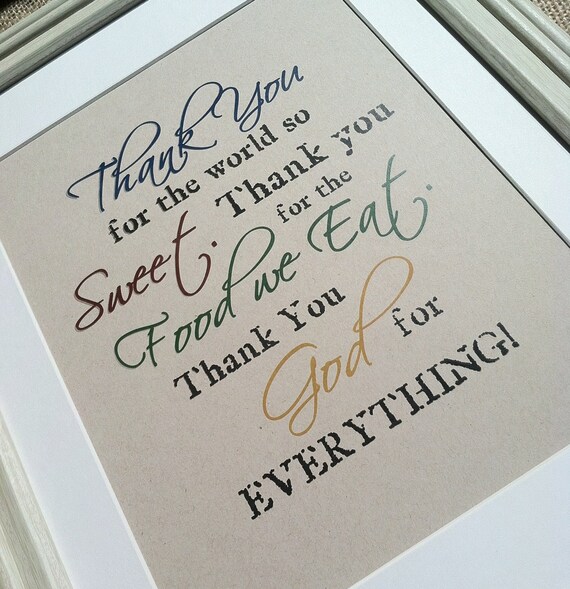 Thank You
for the world so
Sweet. Thank you
for the
Food we Eat.
Thank You
God for
EVERYTHING!